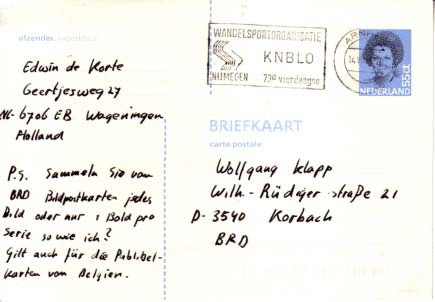 afzender, expediteur
Edwin de Korte
Geertjesweg 27
NL-6706 EB Wageningen
Holland
P.S. Sammeln Sie von
BRD Bildpostkarten jedes
Bild oder nur 1 Bold pro
Serie so wie ich?
Gilt auch für die Publibel-
karten von Belgien.
WANDELSPORTORGANISATIE
KNBLO
NIJMEGEN 73e vierdaagse
NEDERLAND 55ct
BRIEFKAART
carte postale
Wolfgang Klapp
Wilh.-Rüdiger-straße 21
D-3540 Korbach
BRD